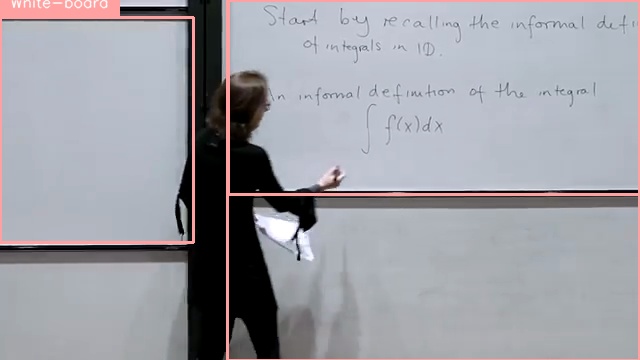 White-board
Start by recalling the informal defi
of integrals in 1D.
An informal definition of the integral
∫ f(x)dx